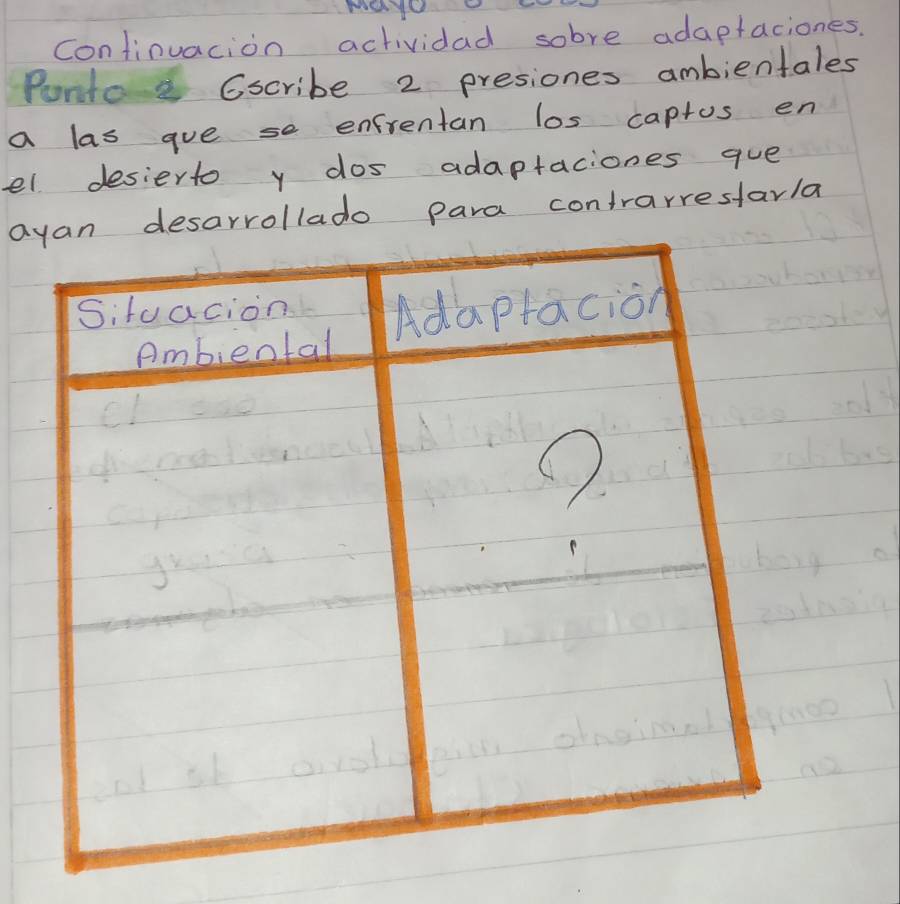 Mayo
continuación actividad sobre adaptaciones.
Punto 2 Escribe 2 presiones ambientales
a las que se enfrentan los captus en
el desierto y dos adaptaciones que
ayan desarrollado para contrarrestarla
Situación Adaptación
Ambiental
el oso
?
gracia